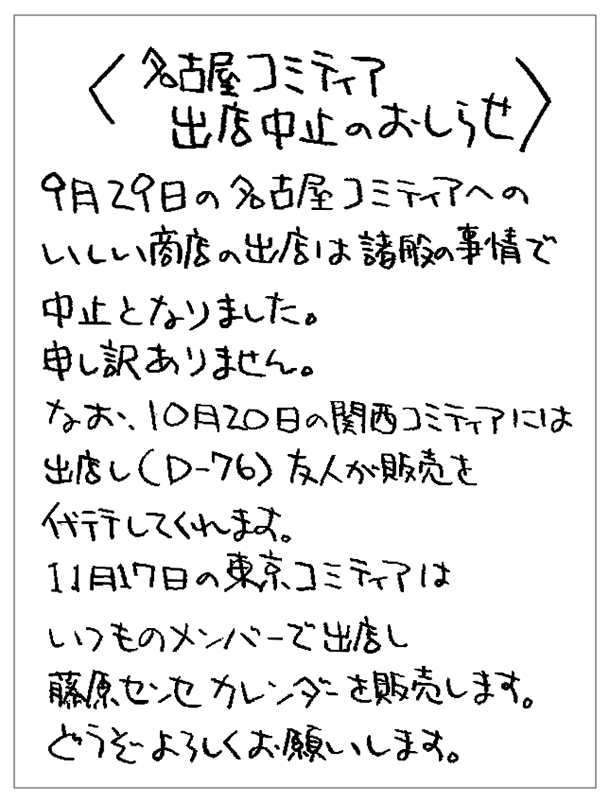 〈名古屋コミティア
出店中止のおしらせ〉
9月29日の名古屋コミティアへの
いしい商店の出店は諸般の事情で
中止となりました。
申し訳ありません。
なお、10月20日の関西コミティアには
出店し(D-76)友人が販売を
代行してくれます。
11月17日の東京コミティアは
いつものメンバーで出店し
藤原センセカレンダーを販売します。
どうぞよろしくお願いします。